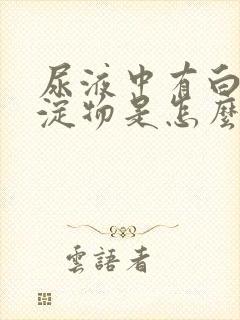 尿液中有白
淀物是怎麼
雲語者